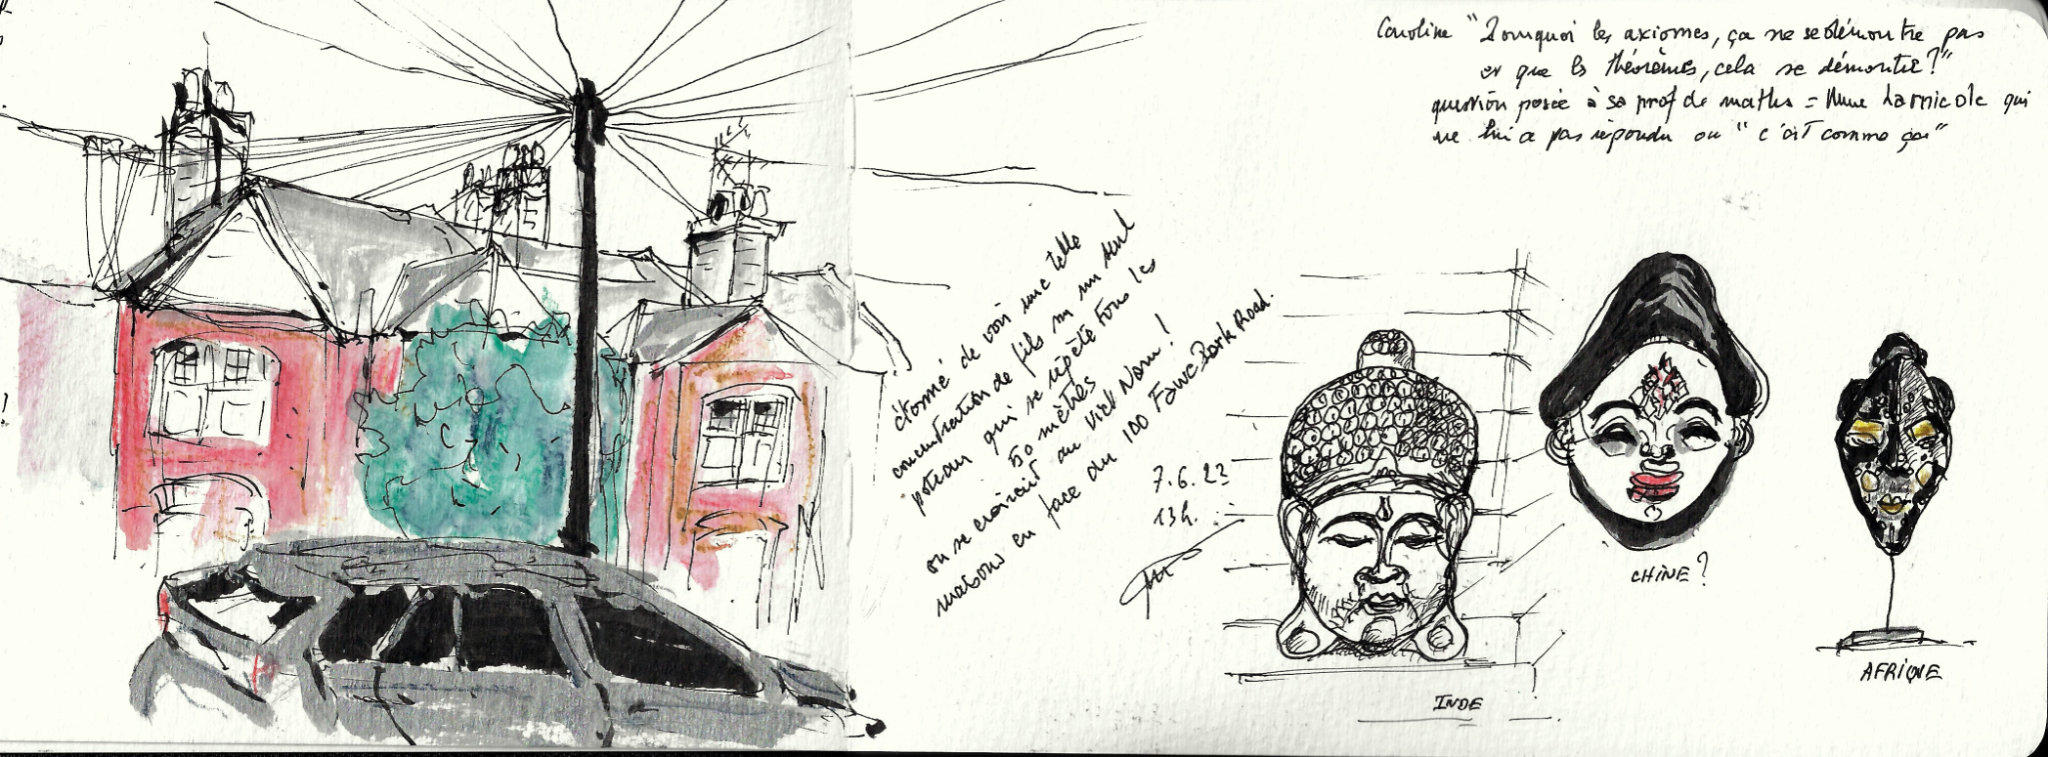 Caroline "Pourquoi les axiomes, ça ne se démontre pas
et que les théorèmes, cela se démontre?"
question posée à sa prof de maths = Mme Larnicole qui
ne lui a pas répondu ou "c'est comme ça"
étonné de voir une telle
concentration de fils sur un seul
poteau qui se répète tous les
50 mètres
on se croirait au Viet Nam !
maisons en face du 100 Fawe Park Road.
7.6.23
13h.
INDE
CHINE ?
AFRIQUE